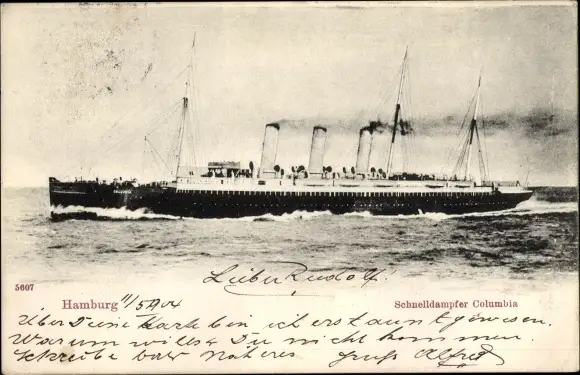 Lieber Rudolf!
5607
Hamburg 11/5 04
Schnelldampfer Columbia
Über Deine Karte bin ich erstaunt gewesen.
Warum willst Du nicht kommen.
Schreibe bald Näheres Gruß Alfred